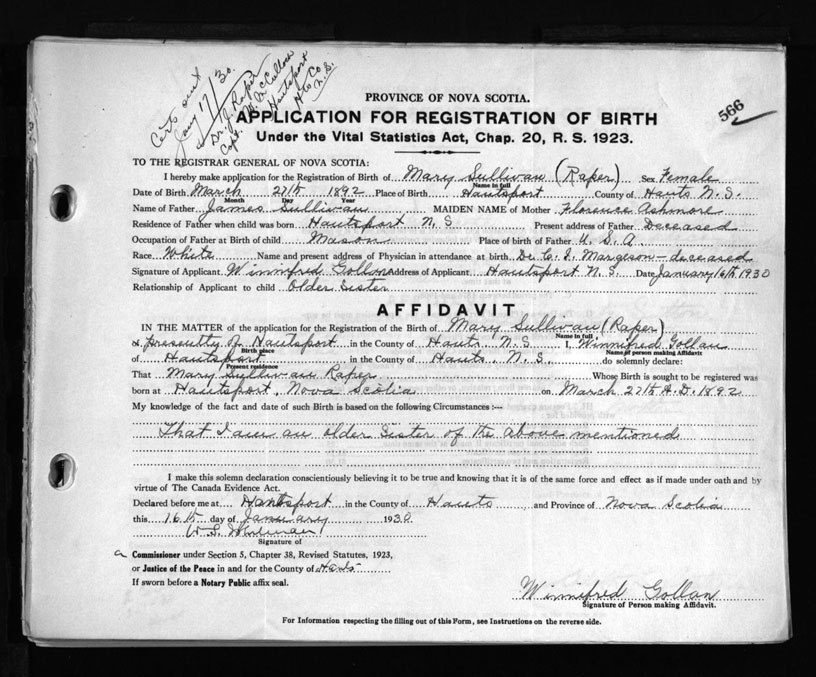 Certs sent
Jany 17/30.
Dr. J. Raper
Capt. W. McCulloch
Hantsport
Hts Co.
N.S.
566
PROVINCE OF NOVA SCOTIA.
APPLICATION FOR REGISTRATION OF BIRTH
Under the Vital Statistics Act, Chap. 20, R. S. 1923.
TO THE REGISTRAR GENERAL OF NOVA SCOTIA:
I hereby make application for the Registration of Birth of Mary Sullivan (Raper) Sex Female
Name in full
Date of Birth March 27th 1892 Place of Birth Hantsport County of Hants N. S.
Month Day Year
Name of Father James Sullivan MAIDEN NAME of Mother Florence Ashmore
Residence of Father when child was born Hantsport N. S Present address of Father Deceased
Occupation of Father at Birth of child Mason Place of birth of Father U. S. A.
Race White Name and present address of Physician in attendance at birth Dr. C. I. Margeson - deceased
Signature of Applicant Winnifred Gollan Address of Applicant Hantsport N. S. Date January 16th 1930
Relationship of Applicant to child Older Sister
AFFIDAVIT
IN THE MATTER of the application for the Registration of the Birth of Mary Sullivan (Raper)
Name in full
presently of Hantsport in the County of Hants N. S I, Winnifred Gollan
Birth place Name of person making Affidavit
of Hantsport in the County of Hants, N. S. do solemnly declare:
Present residence
That Mary Sullivan Raper Whose Birth is sought to be registered was
born at Hantsport, Nova Scotia on March 27th A. D. 1892
My knowledge of the fact and date of such Birth is based on the following Circumstances :—
That I am an older Sister of the above mentioned
I make this solemn declaration conscientiously believing it to be true and knowing that it is of the same force and effect as if made under oath and by
virtue of The Canada Evidence Act.
Declared before me at Hantsport in the County of Hants and Province of Nova Scotia
this 16th day of January 1930
Signature of
a Commissioner under Section 5, Chapter 38, Revised Statutes, 1923,
or Justice of the Peace in and for the County of Hants
If sworn before a Notary Public affix seal.
Winnifred Gollan
Signature of Person making Affidavit.
For Information respecting the filling out of this Form, see Instructions on the reverse side.